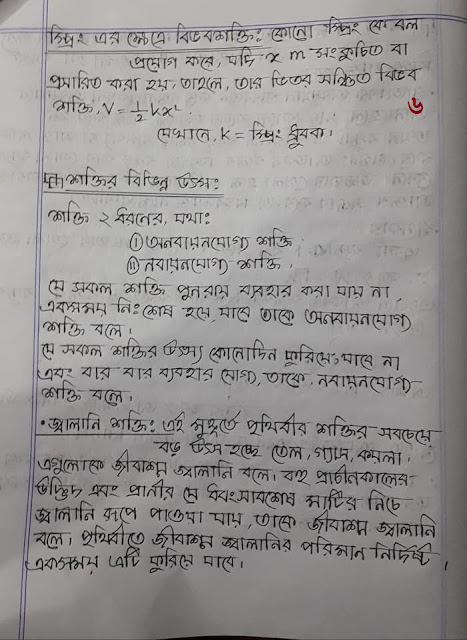 স্প্রিং এর ক্ষেত্রে বিভবশক্তি: কোনো স্প্রিং কে বল
প্রয়োগ করে, যদি x m সংকুচিত বা
প্রসারিত করা হয়, তাহলে, তার ভিতর সঞ্চিত বিভব
শক্তি, V = ½ kx²
৬
যেখানে, k = স্প্রিং ধ্রুবক।
শক্তির বিভিন্ন উৎস:
শক্তি ২ ধরনের, যথা:
(i) অনবায়নযোগ্য শক্তি
(ii) নবায়নযোগ্য শক্তি,
যে সকল শক্তি পুনরায় ব্যবহার করা যায় না
একসময় নিঃশেষ হয়ে যাবে তাকে অনবায়নযোগ্য
শক্তি বলে।
যে সকল শক্তির উৎস কোনোদিন ফুরিয়ে যাবে না
এবং বার বার ব্যবহার যোগ্য, তাকে, নবায়নযোগ্য
শক্তি বলে।
• জ্বালানি শক্তি: এই মুহূর্তে পৃথিবীর শক্তির সবচেয়ে
বড় উৎস হচ্ছে তেল, গ্যাস, কয়লা।
এগুলোকে জীবাশ্ম জ্বালানি বলে। বহু প্রাচীনকালের
উদ্ভিদ এবং প্রানীর যে ধ্বংসাবশেষ মাটির নিচে
জ্বালানি রূপে পাওয়া যায়, তাকে জীবাশ্ম জ্বালানি
বলে। পৃথিবীতে জীবাশ্ম জ্বালানির পরিমান নির্দিষ্ট
একসময় এটি ফুরিয়ে যাবে।